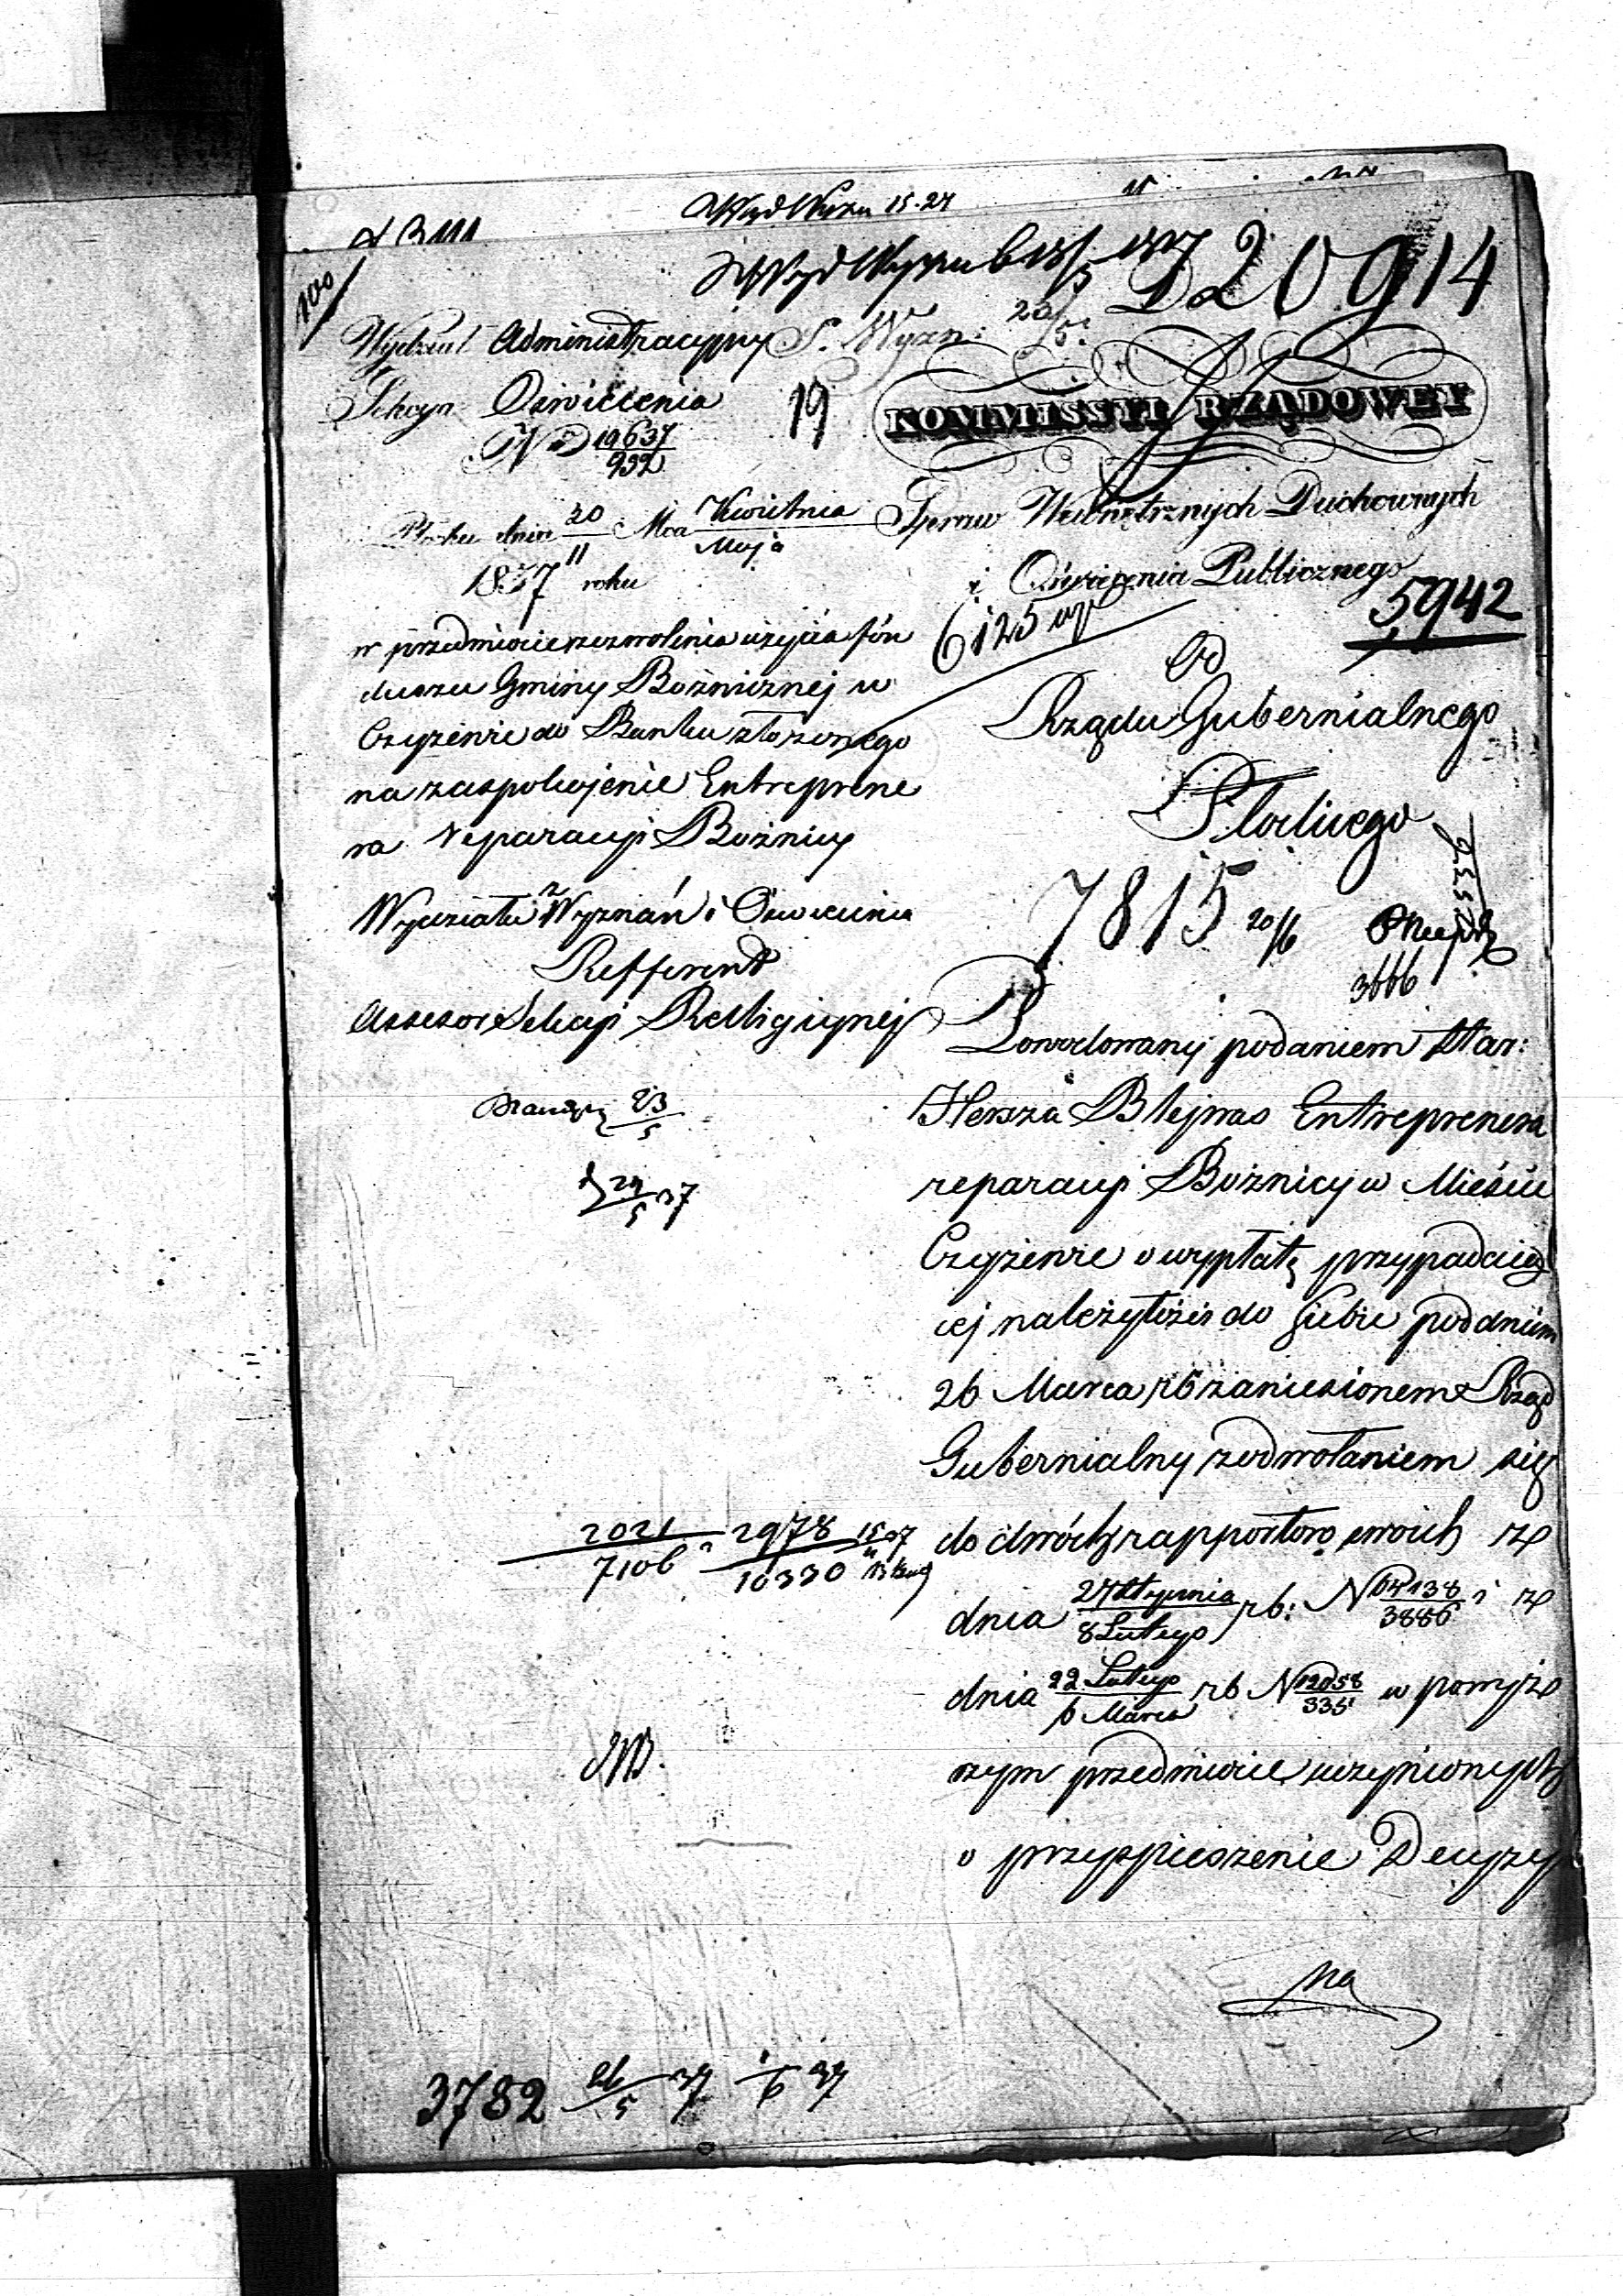 20914
100
Wydział Administracyjny S. Wyzn: 23/5
Sekcya Oświecenia
19
KOMMISSYI RZĄDOWEY
N 19637/952
Płocku dnia 20/11 Mca Kwietnia/Maja
1837 roku
Spraw Wewnętrznych Duchownych
i Oświecenia Publicznego
5942
6125
w przedmiocie zezwolenia użycia fun
duszu Gminy Bożnicznej w
Czyżewie do Banku złożonego
na zaspokojenie Entreprene
ra reparacyi Bożnicy
Od
Rządu Gubernialnego
Płockiego
7815 20/6
3666
Wydziału Wyznań i Oświecenia
Refferent
Assesor Sekcyi Relligiynej
23/5
29/5 37
Powodowany podaniem Star:
Herszka Blejwas Entreprenera
reparacyi Bożnicy w Mieście
Czyżewie o wypłatę przypadaią
cej należytości do siebie pod dniem
26 Marca rb zaniesionem Rząd
Gubernialny z odwołaniem się
do dwóch rapportow swoich ze
dnia 27 Stycznia/8 Lutego rb: N 64138/3886 i ze
dnia 22 Lutego/6 Marca rb N 12058/335 w powyż
szym przedmiocie uczynionych
o przyspieszenie Decyzyi
2021/7106 2978/10330
NB.
na
3782 26/5 37 1/6 37